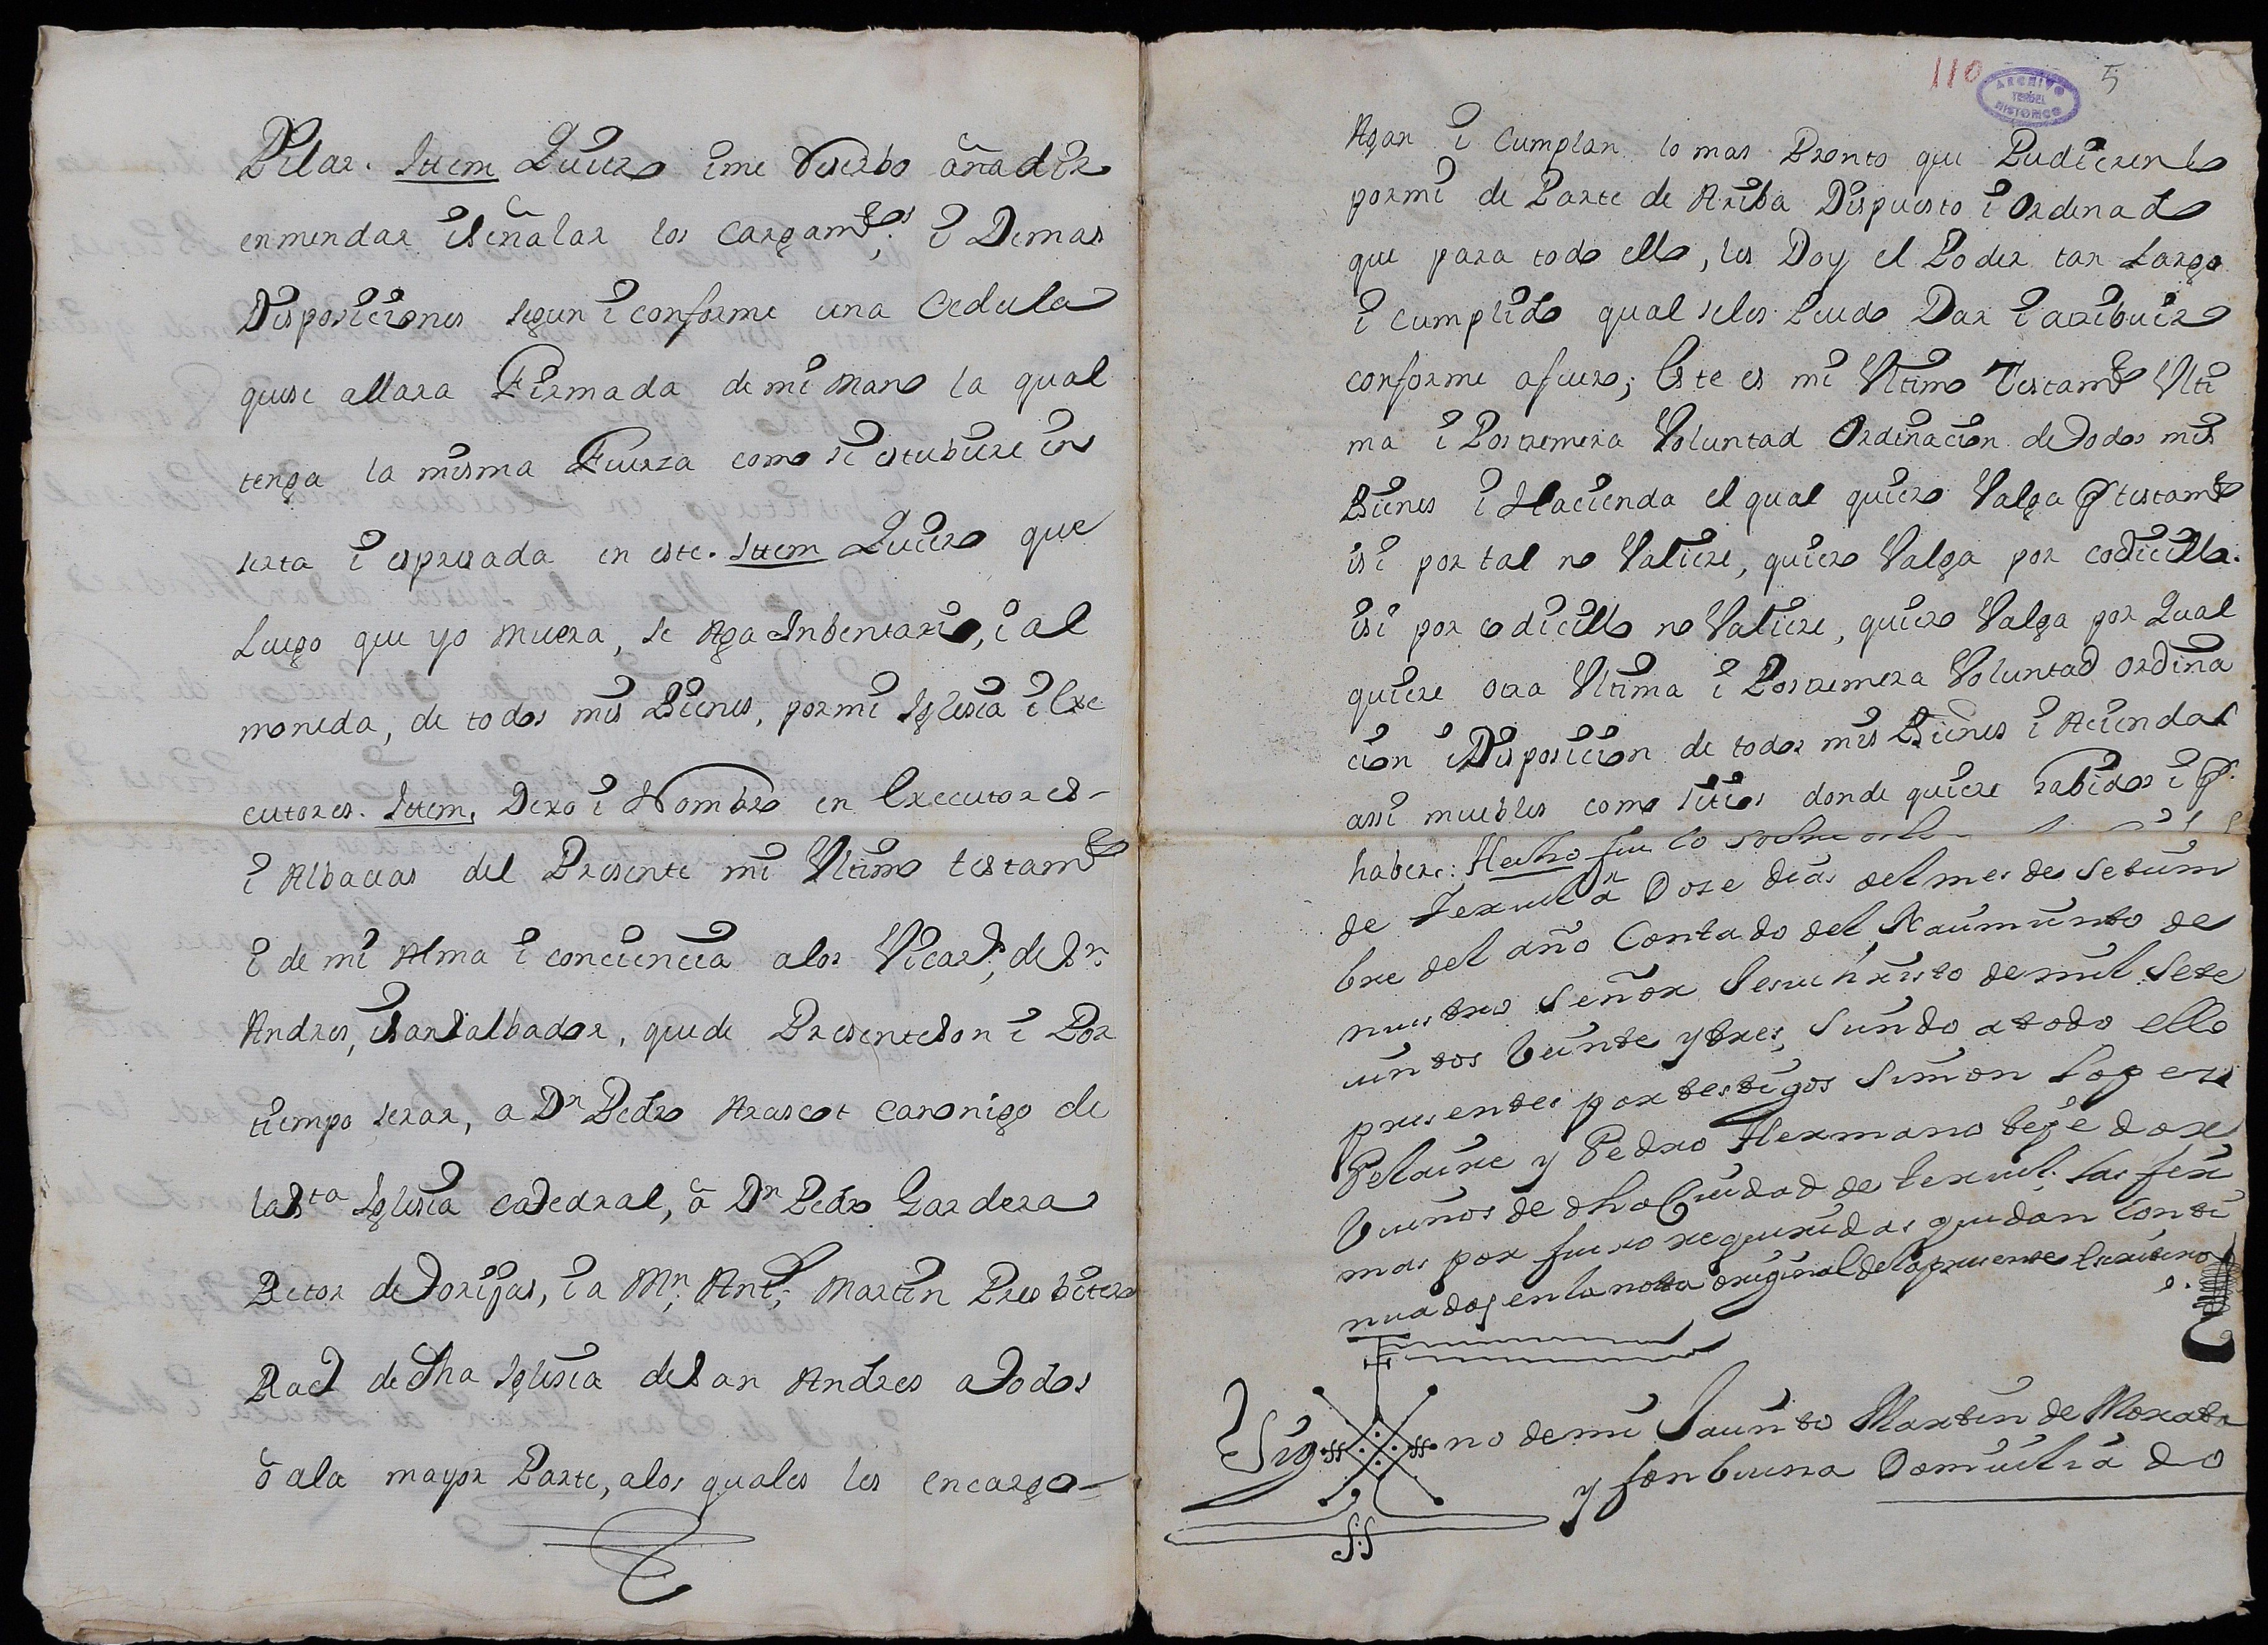 Pilar. Ittem Quiero i me Reserbo añadir
enmendar i señalar los cargamtos, i Demas
Disposiciones segun i conforme una Cedula
quese allara Firmada de mi mano la qual
tenga la misma Fuerza como si estubiere in
serta i espresada en este. Ittem Quiero que
Luego que yo muera, se Aga Inbentario, i al
moneda, de todos mis Bienes, por mi Iglesia i Exe
cutores. Ittem, Dexo i Nombro en Executores
i Albaceas del Presente mi Ultimo testamto
i de mi Alma i conciencia alos Vicars, de Sn
Andres, i San Salbador, que de Presente son i Por
tiempo seran, a Dn Pedro Arascot Canonigo de
la Sta Iglesia Catedral, a Dn Pedro Gardera
Retor de Torijas, i a Mn. Ant. Martin Presbitero
Racl de dha Iglesia de San Andres a Todos
ò ala mayor Parte, alos quales les encargo
110 5
ARCHIVO HISTORICO TERUEL
Agan i Cumplan lo mas Pronto que Pudieren lo
por mi de Parte de Ariba Dispuesto i Ordenado
que para todo ello, les Doy el Poder tan Largo
i cumplido qual seles Puedo Dar i atribuir
conforme a fuero; Este es mi Ultimo Testamto Ulti
ma i Postremera Voluntad Ordinacion de Todos mis
Bienes i Hacienda el qual quiero Valga p testamto
i si por tal no Valiere, quiero Valga por codicillo.
i si por codicillo no Valiere, quiero Valga por Qual
quiere otra Ultima i Postremera Voluntad ordina
cion i Disposicion de todos mis Bienes i Aciendas
assi muebles como sitios donde quiere habidos i p.
haber: Hecho fue lo sobre
de Teruel a Doze dias del mes de Setiem
bre del año Contado del Nacimiento de
nuestro Señor Jesuchristo de mil Sete
cientos veinte y tres, Siendo a todo ello
presentes por testigos Simon Lopez
Pelaire y Pedro Hermano tejedor
Vecinos de dha Ciudad de Teruel. Las fir
mas por fuero requeridas quedan Conti
nuadas en la nota original dela presente Escritura
Sig no de mi Jacinto Martin de Morata
y fonbuena Domiciliado